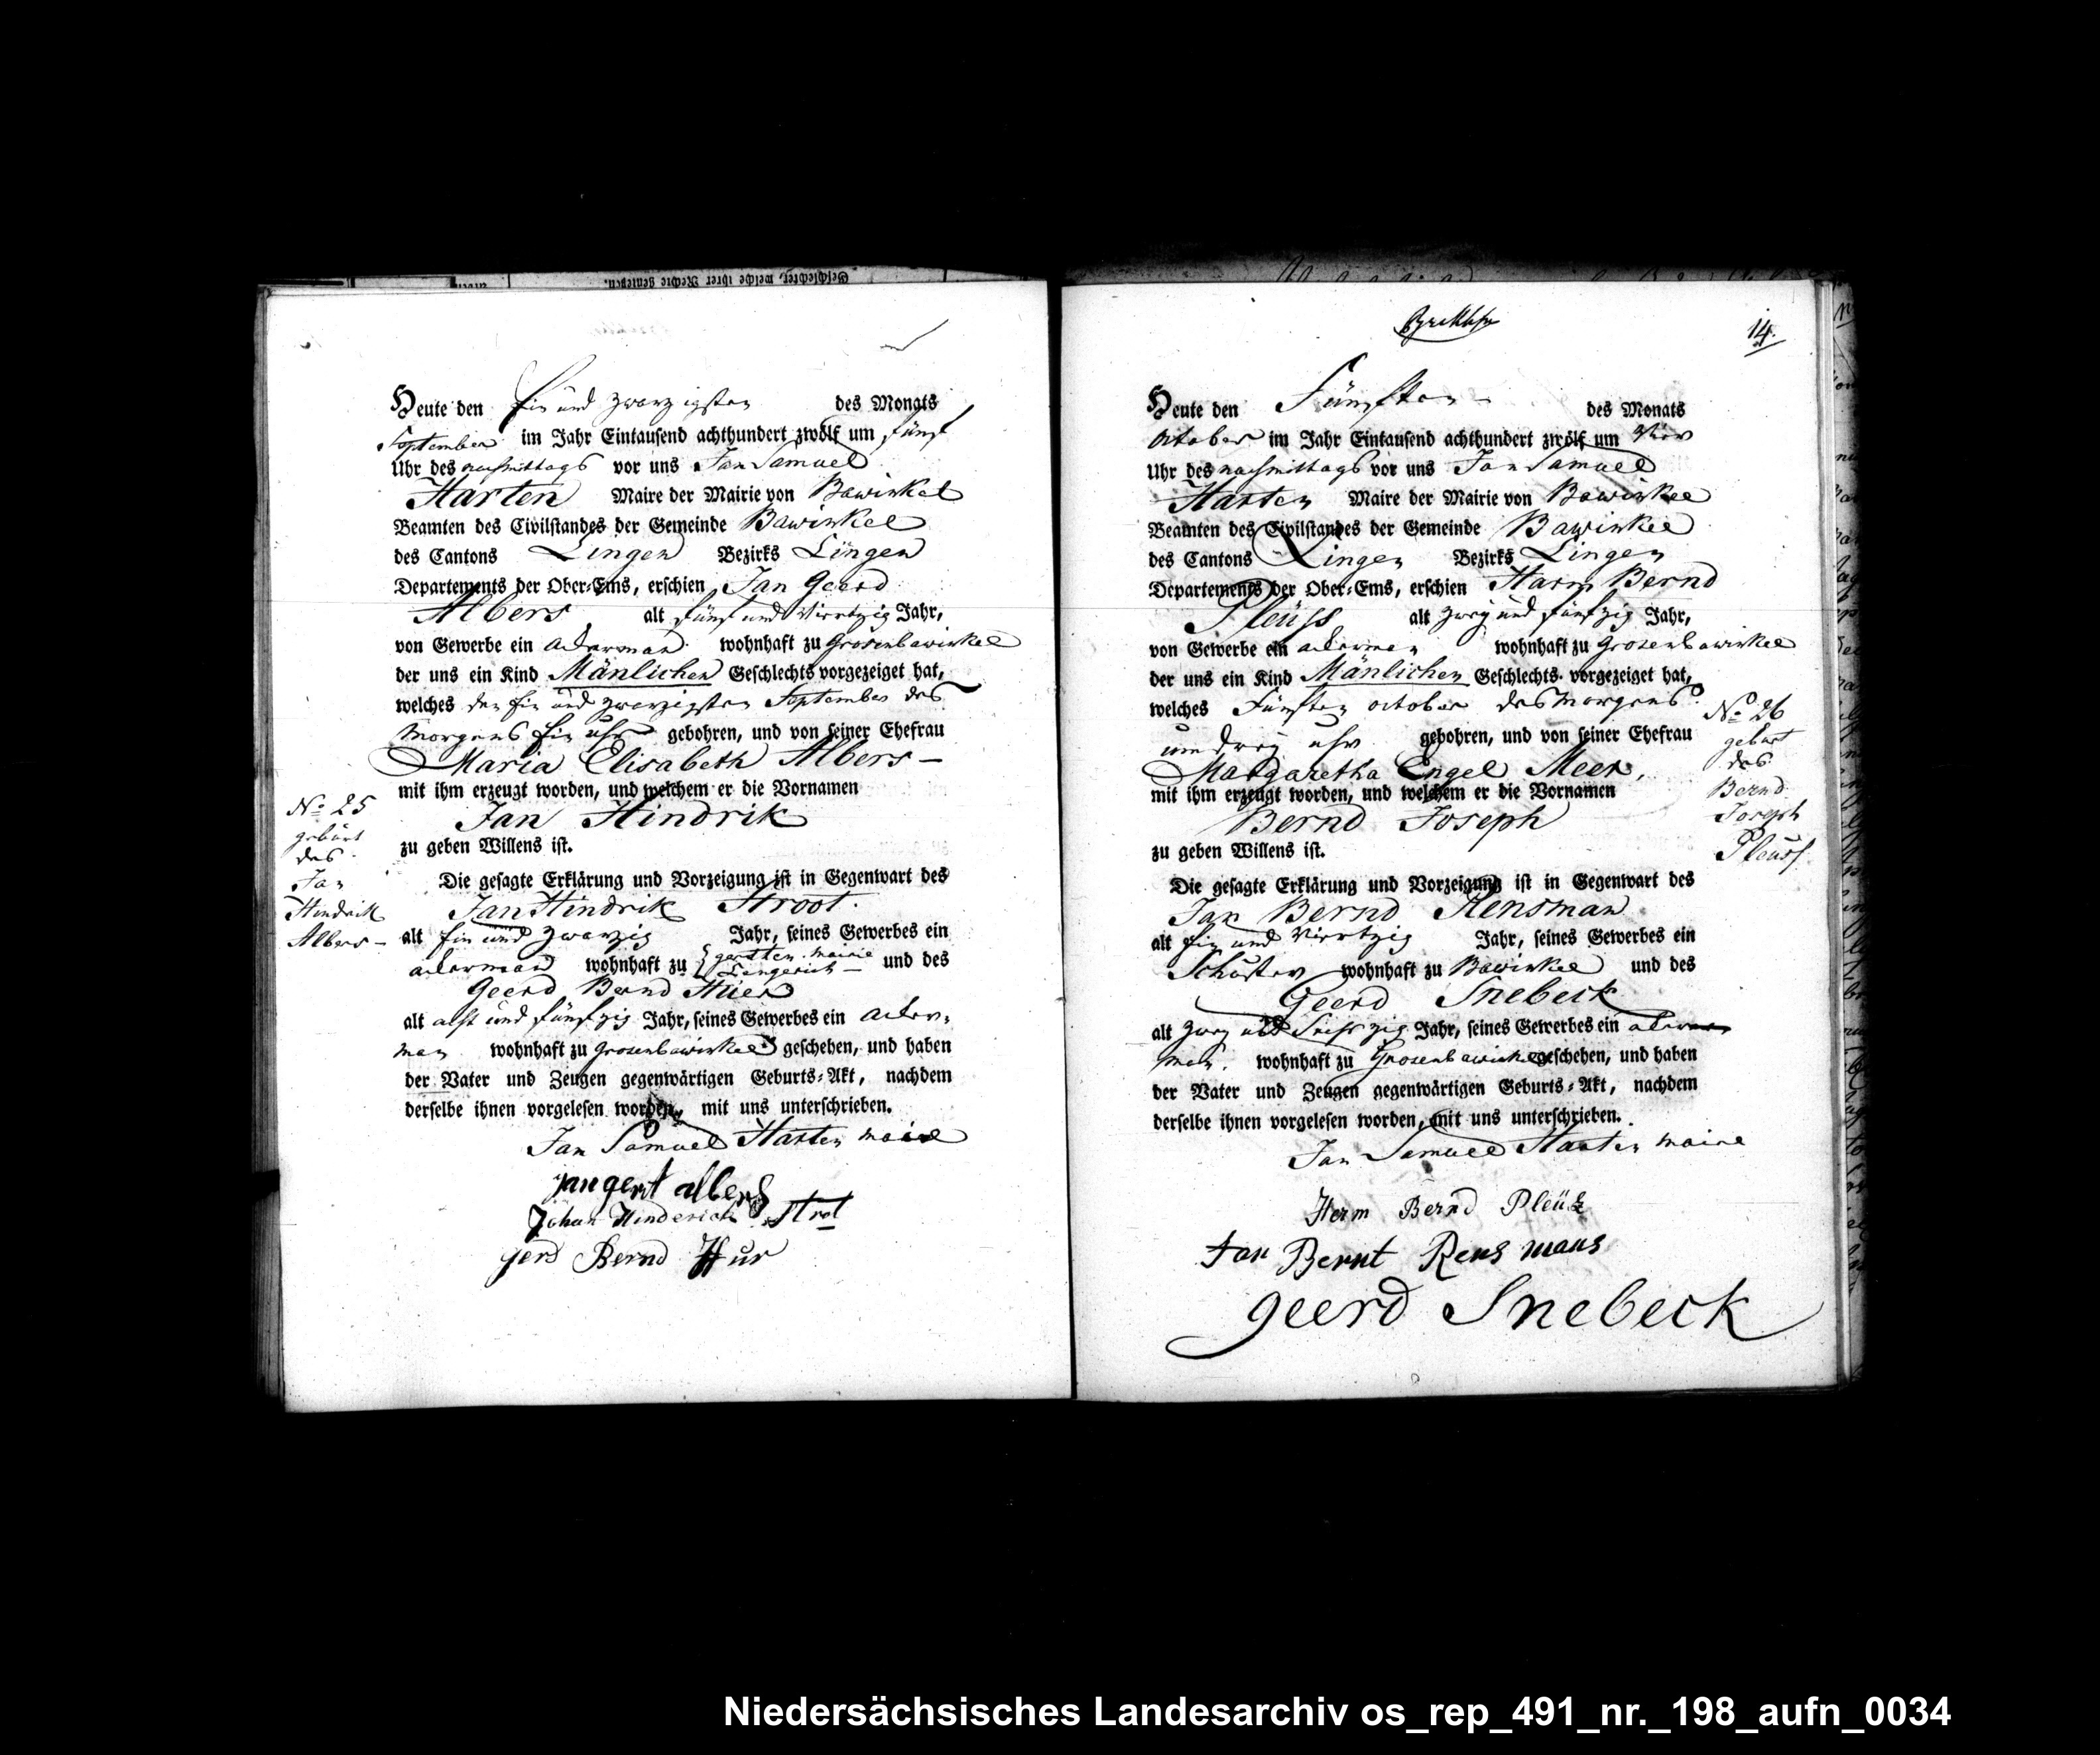 Heute den Ein und zwanzigsten des Monats
September im Jahr Eintausend achthundert zwölf um fünf
Uhr des nachmittags vor uns Jan Samuel
Harten Maire der Mairie von Bawinkel
Beamten des Civilstandes der Gemeinde Bawinkel
des Cantons Lingen Bezirks Lingen
Departements der Ober-Ems, erschien Jan Geerd
Albers alt fünf und Viertzig Jahr,
von Gewerbe ein ackerman wohnhaft zu Grosenbawinkel
der uns ein Kind Mänlichen Geschlechts vorgezeiget hat,
welches den Ein und zwanzigsten September des
Morgens Ein uhr gebohren, und von seiner Ehefrau
Maria Elisabeth Albers –
mit ihm erzeugt worden, und welchem er die Vornamen
Jan Hindrik
zu geben Willens ist.
Die gesagte Erklärung und Vorzeigung ist in Gegenwart des
Jan Hindrik Stroot.
alt Ein und zwanzig Jahr, seines Gewerbes ein
ackerman wohnhaft zu gersten mairie Lengerich – und des
Geerd Bernd Hüer
alt acht und fünfzig Jahr, seines Gewerbes ein acker-
man wohnhaft zu Grosenbawinkel geschehen, und haben
der Vater und Zeugen gegenwärtigen Geburts-Akt, nachdem
derselbe ihnen vorgelesen worden, mit uns unterschrieben.
Jan Samuel Harten maire
jan gert albers
Johan Hinderich Strot
gerd Bernd Hur
No 25
geburt
des
Jan
Hindrik
Albers –
14.
Heute den Fünften – des Monats
October im Jahr Eintausend achthundert zwölf um Vier
Uhr des nachmittags vor uns Jan Samuel
Harten Maire der Mairie von Bawinkel
Beamten des Civilstandes der Gemeinde Bawinkel
des Cantons Lingen Bezirks Lingen
Departements der Ober-Ems, erschien Harm Bernd
Pleüss alt zwey und fünfzig Jahr,
von Gewerbe ein ackerman wohnhaft zu Grosenbawinkel
der uns ein Kind Mänlichen Geschlechts vorgezeiget hat,
welches Fünften october des Morgens
um drey uhr gebohren, und von seiner Ehefrau
Margaretha Engel Meer,
mit ihm erzeugt worden, und welchem er die Vornamen
Bernd Joseph
zu geben Willens ist.
Die gesagte Erklärung und Vorzeigung ist in Gegenwart des
Jan Bernd Rensman
alt Ein und Viertzig Jahr, seines Gewerbes ein
Schuster wohnhaft zu Bawinkel und des
Geerd Snebeck
alt zwey und Sechszig Jahr, seines Gewerbes ein acker
man. wohnhaft zu Grosenbawinkel geschehen, und haben
der Vater und Zeugen gegenwärtigen Geburts-Akt, nachdem
derselbe ihnen vorgelesen worden, mit uns unterschrieben.
Jan Samuel Harten maire
Herm Bernd Pleüs
Jan Bernt Rensmans
geerd Snebeck
No 26
geburt
des
Bernd
Joseph
Pleuss
Niedersächsisches Landesarchiv os_rep_491_nr._198_aufn_0034